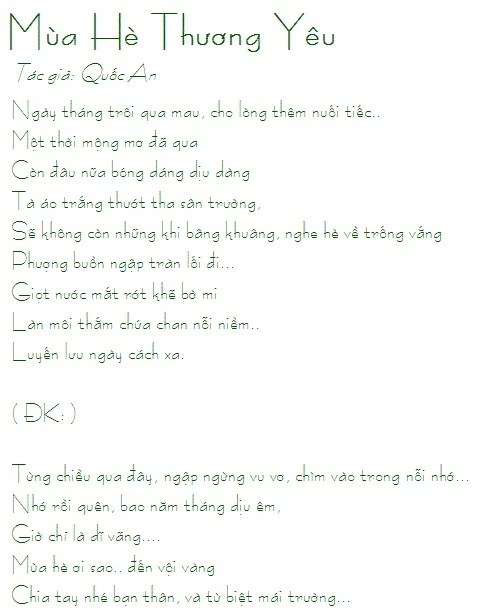 Mùa Hè Thương Yêu
Tác giả: Quốc An
Ngày tháng trôi qua mau, cho lòng thêm nuối tiếc..
Một thời mộng mơ đã qua
Còn đâu nữa bóng dáng dịu dàng
Tà áo trắng thướt tha sân trường,
Sẽ không còn những khi bâng khuâng, nghe hè về trống vắng
Phượng buồn ngập tràn lối đi...
Giọt nước mắt rớt khẽ bờ mi
Làn môi thắm chứa chan nỗi niềm..
Luyến lưu ngày cách xa.
( ĐK: )
Từng chiều qua đây, ngập ngừng vu vơ, chìm vào trong nỗi nhớ...
Nhớ rồi quên, bao năm tháng dịu êm,
Giờ chỉ là dĩ vãng....
Mùa hè ơi sao.. đến vội vàng
Chia tay nhé bạn thân, và từ biệt mái trường...